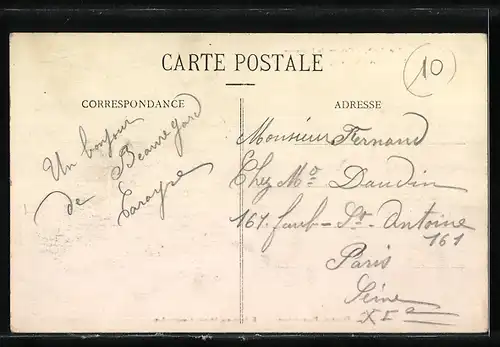 CARTE POSTALE
10
CORRESPONDANCE
ADRESSE
Un bonjour
de Beauregard
Monsieur Fernand
Chez Mo Daudin
161 faub-St-Antoine
161
Paris
Seine
XIe